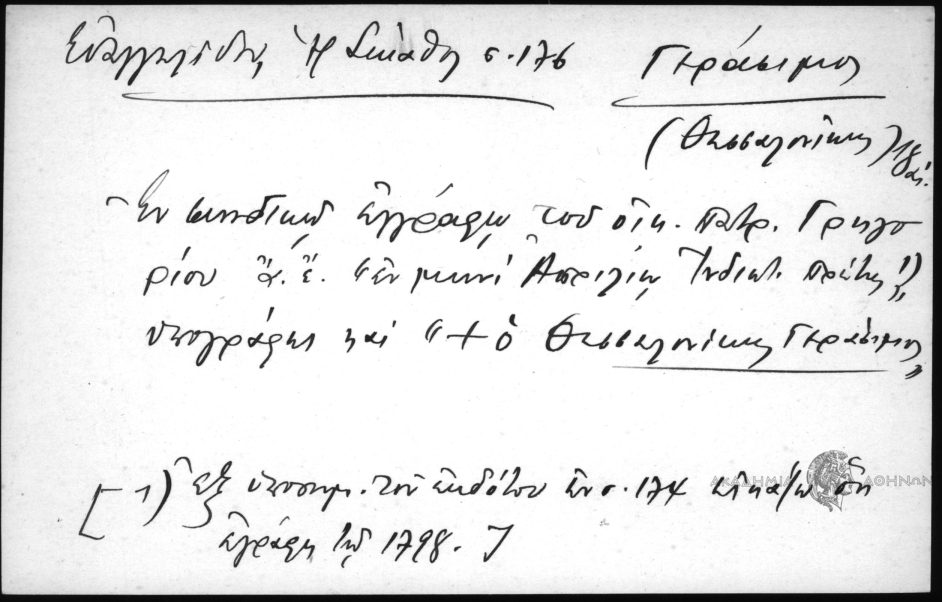 Εὐαγγελίδου, Ἡ Σκίαθος σ. 176 Γεράσιμος
(Θεσσαλονίκης) 18 αἰ.
Ἐν συνοδικῷ ἐγγράφῳ τοῦ οἰκ. πατρ. Γρηγο
ρίου ἀ. ἔ. "ἐν μηνὶ Ἀπριλίῳ Ἰνδικτ. πρώτης 1)"
ὑπογράφει καὶ "+ ὁ Θεσσαλονίκης Γεράσιμος"
[1) Ἐξ ὑποσημ. τοῦ ἐκδότου ἐν σ. 174 εἰκάζω ὅτι
ἐγράφη τῷ 1798.]
ΑΚΑΔΗΜΙΑ ΑΘΗΝΩΝ